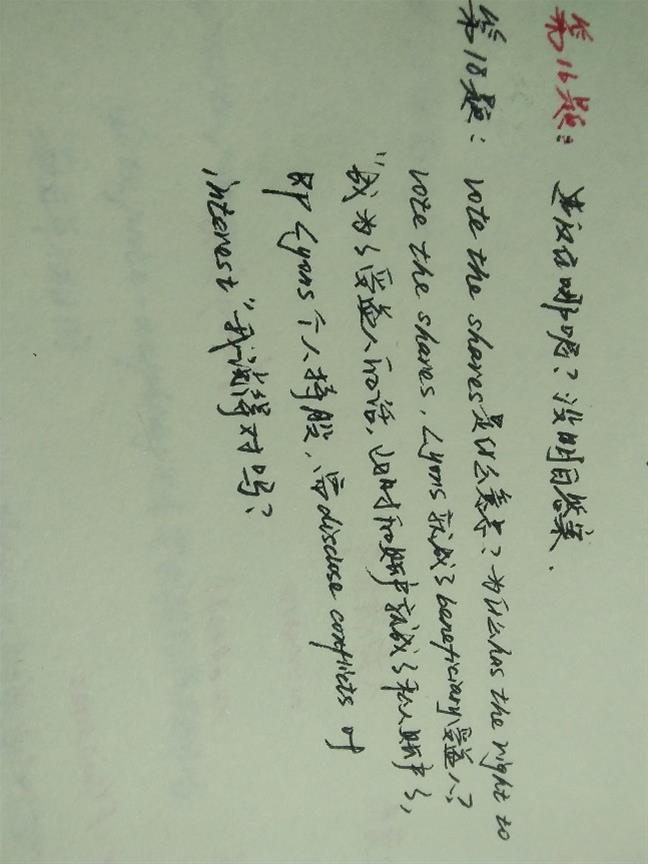 第16题: 违反在哪呢?没明白答案.
第18题: vote the shares是什么意思?为什么has the right to
vote the shares, Lyons就成了beneficiary受益人?
"成为了受益人的话,此时的账户就成了私人账户了,
即Lyons个人持股,需disclose conflicts of
interest"我说得对吗?